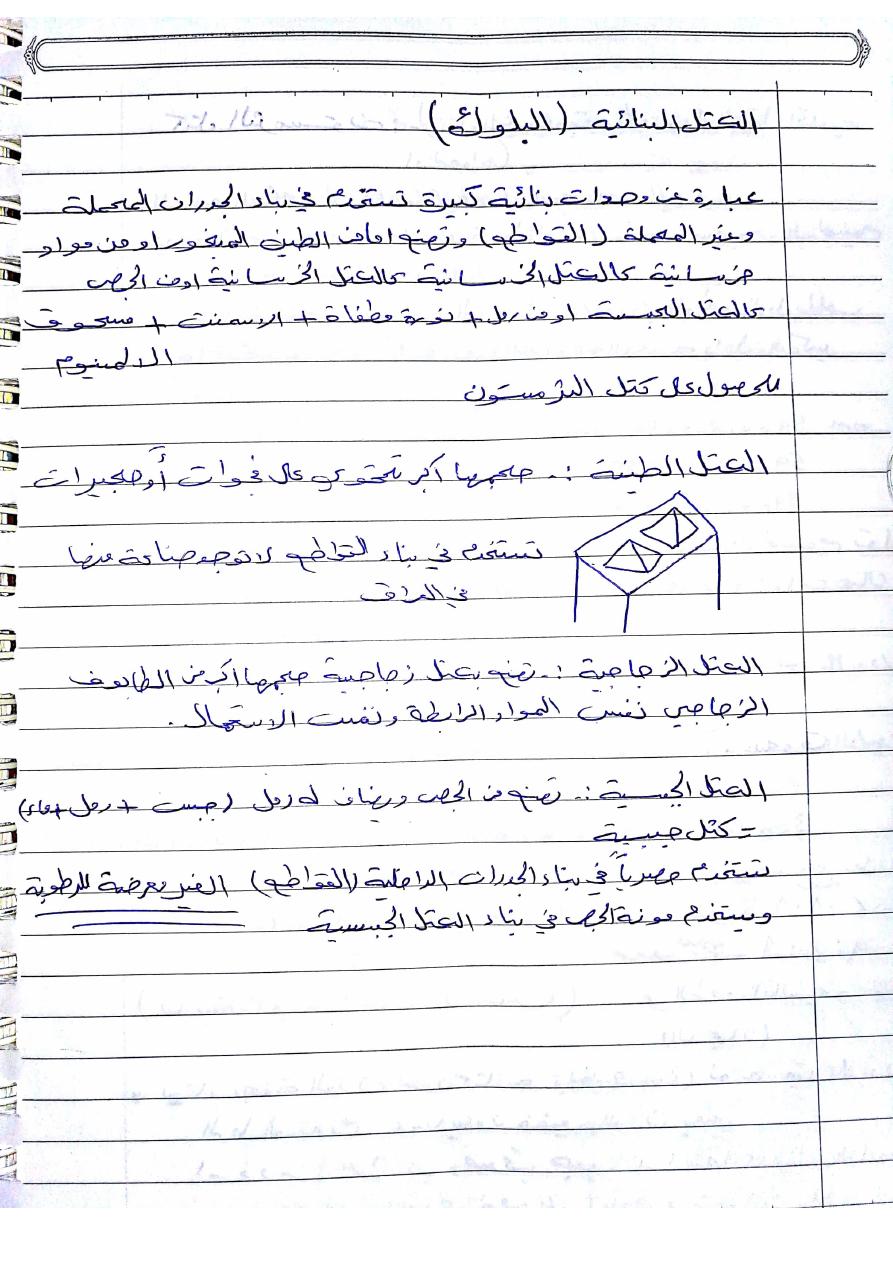 الكتل البنائية (البلوك)
عبارة عن وحدات بنائية كبيرة تستخدم في بناء الجدران المحملة
وغير المحملة (القواطع) وتصنع اما من الطين المفخور او من مواد
خرسانية كالكتل الخرسانية كالكتل الخرسانية او من الجص
كالكتل الجبسية او من رمل + نورة مطفاة + الاسمنت + مسحوق
الالمنيوم
للحصول على كتل الثرمستون
الكتل الطينية :- حجمها اكبر تحتوي على فجوات أو حجيرات
تستخدم في بناء القواطع لا توجد صناعة منها
في العراق
الكتل الزجاجية :- تصنع بكتل زجاجية حجمها اكبر من الطابوق
الزجاجي نفس المواد الرابطة ونفس الاستعمال .
الكتل الجبسية :- تصنع من الجص ويضاف له رمل (جبست + رمل + ماء)
= كتل جبسية
تستخدم حصرياً في بناء الجدران الداخلية (القواطع) الغير معرضة للرطوبة
ويستخدم مونة الجص في بناء الكتل الجبسية